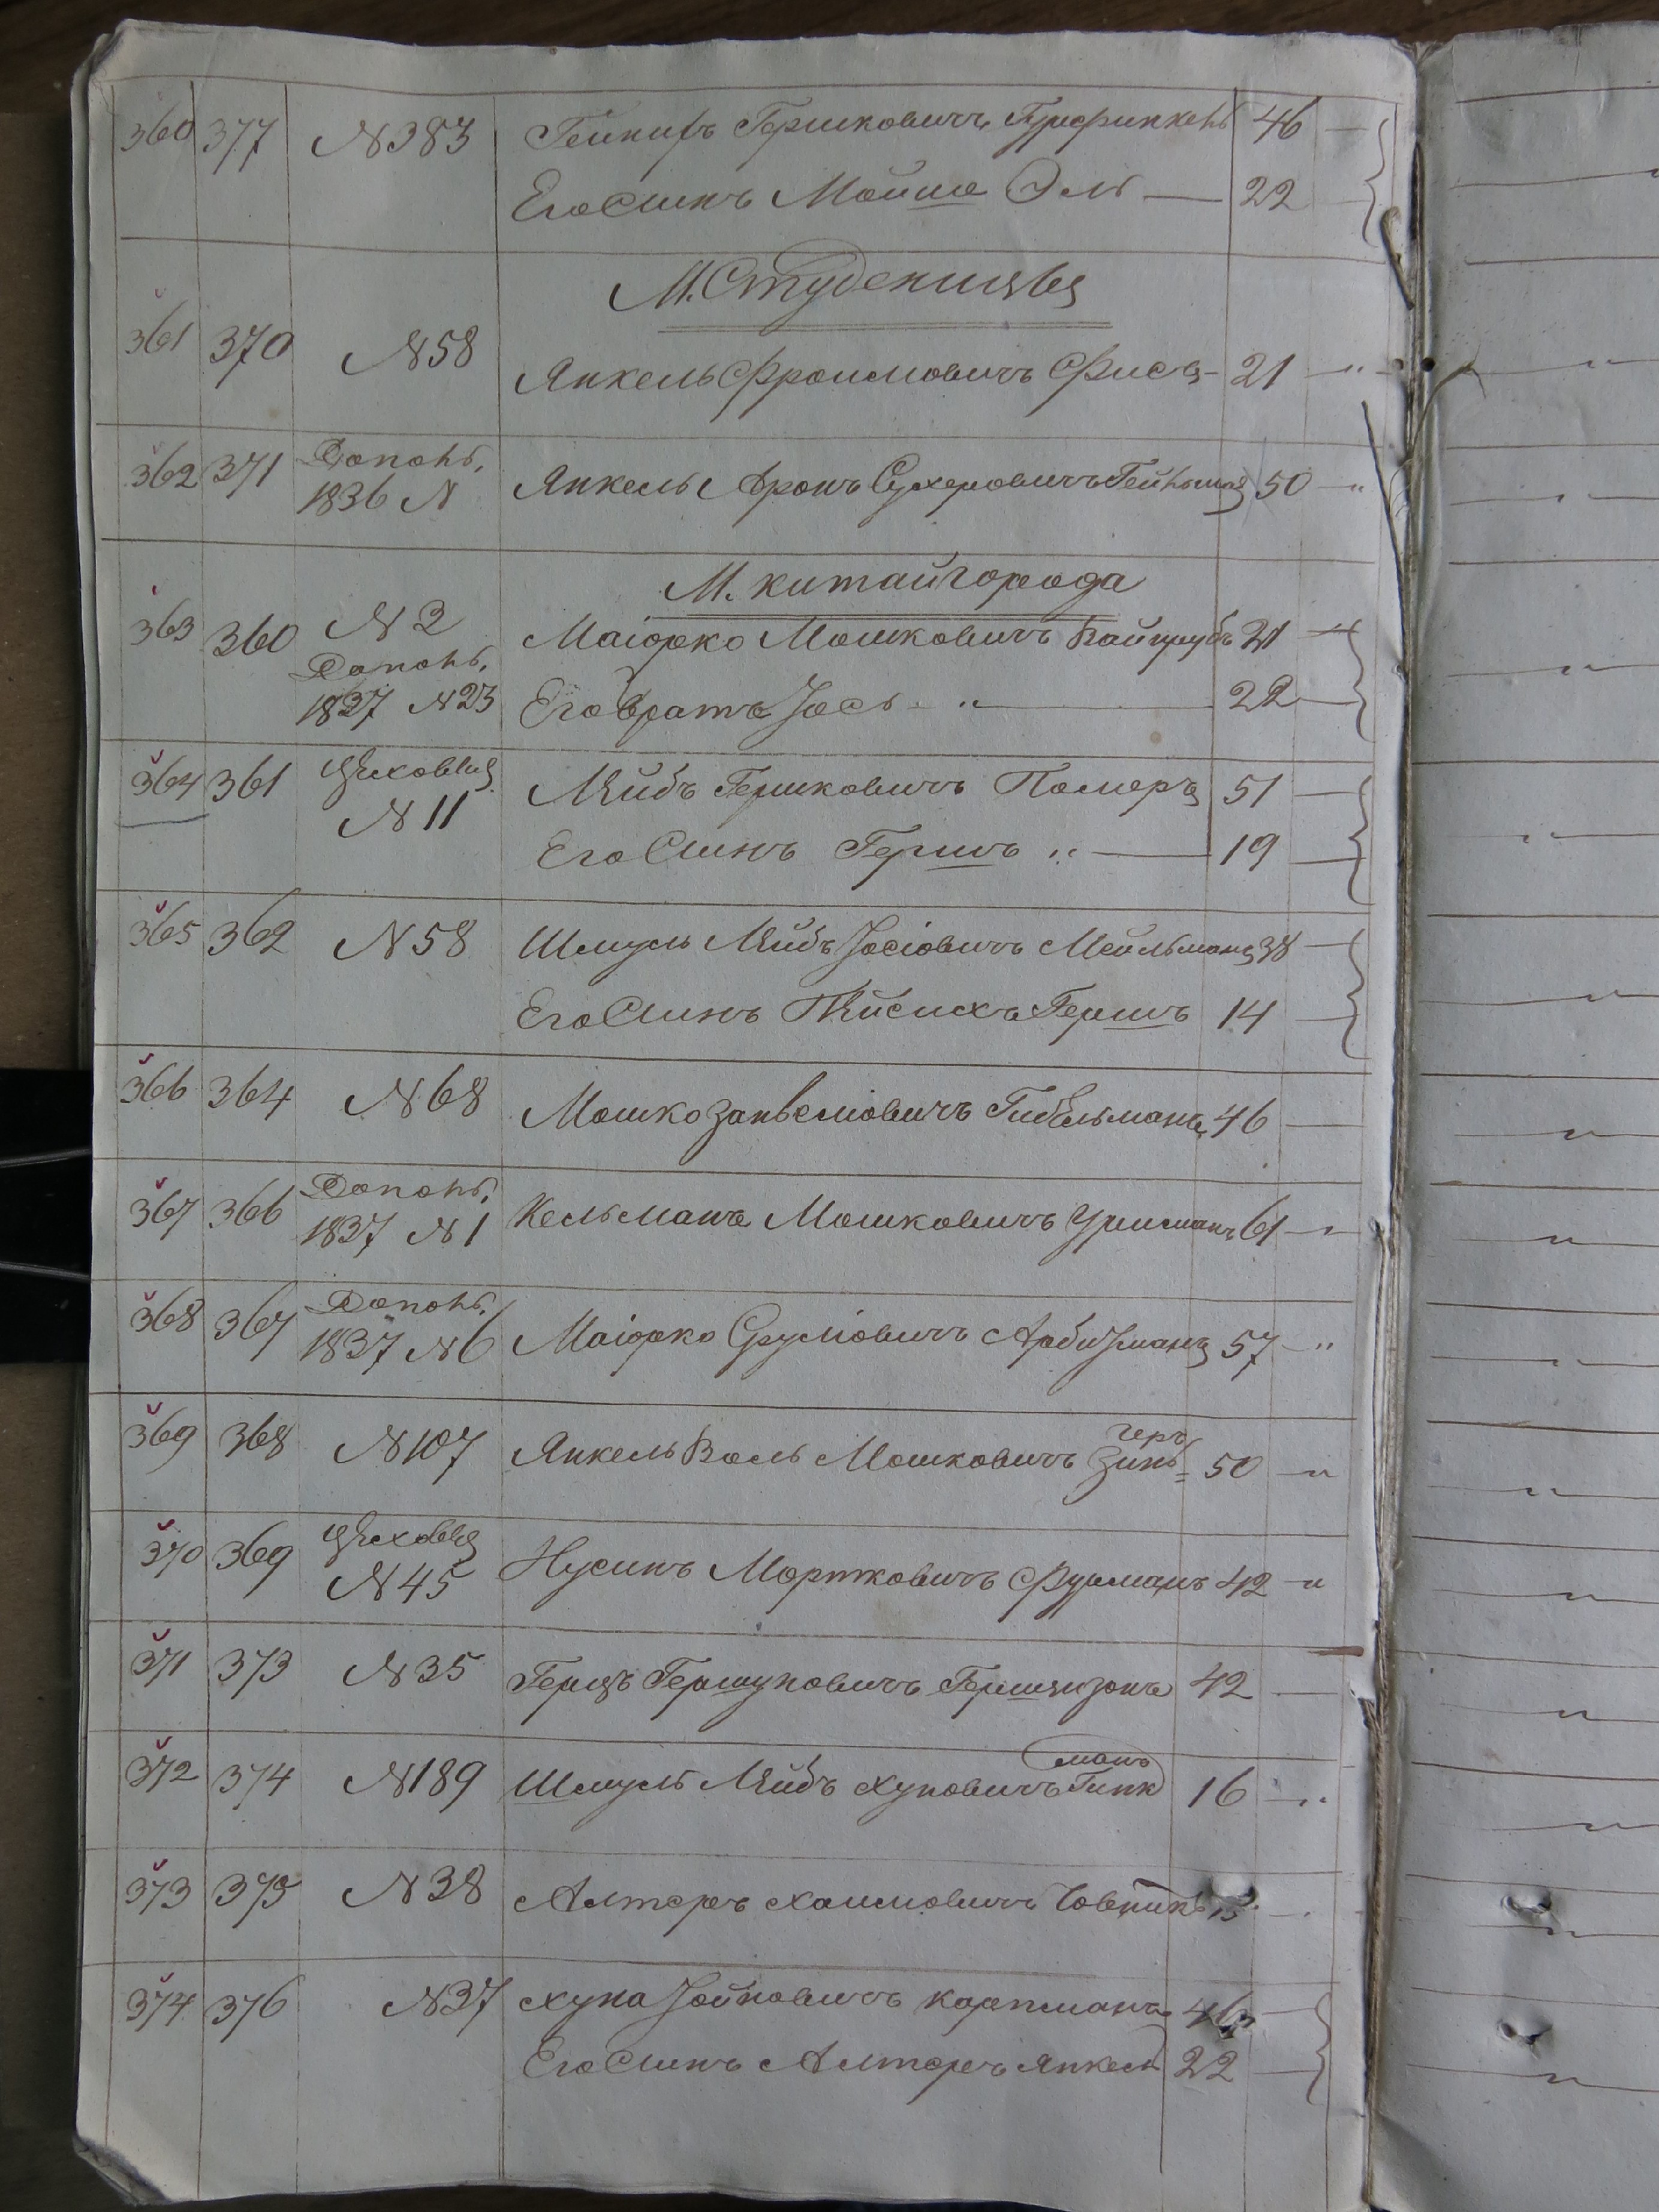 360 377 N383 Гейнихъ Гершковичъ Гурфинкель 46
Его Сынъ Мойше Эль — 22
М. Студеницы
361 370 N58 Янкель Фроимовичъ Фисъ 21 "
362 371 Дополн. 1836 N Янкель Аронъ Сухеровичъ 50 "
М. Китайгорода
363 360 N2 Маіорко Мошковичъ Вайнрубъ 21 "
Дополн. 1837 N23 Его братъ Іось " — 22
364 361 Цеховыя N11 Лейбъ Гершковичъ Померъ 51
Его Сынъ Гершъ " — 19
365 362 N58 Шмуль Лейбъ Іосіовичъ Мейльманъ 38
Его Сынъ Пейсихъ Гершъ 14
366 364 N68 Мошко Занвеліовичъ Гибельманъ 46
367 366 Дополн. 1837 N1 Кельманъ Мошковичъ Урисманъ 61 "
368 367 Дополн. 1837 N6 Маіорко Сруліовичъ Арбитманъ 57 "
369 368 N107 Янкель Волъ Мошковичъ Зингеръ 50 "
370 369 Цеховыя N45 Нусинъ Мортковичъ Фурманъ 42 "
371 373 N35 Герцъ Гершуновичъ Гершензонъ 42
372 374 N189 Шмуль Лейбъ Хуновичъ Гинкманъ 16 "
373 375 N38 Алтеръ Хаимовичъ 15
374 376 N37 Хуна Іойновичъ Карпманъ 46
Его Сынъ Алтеръ Янкель 22